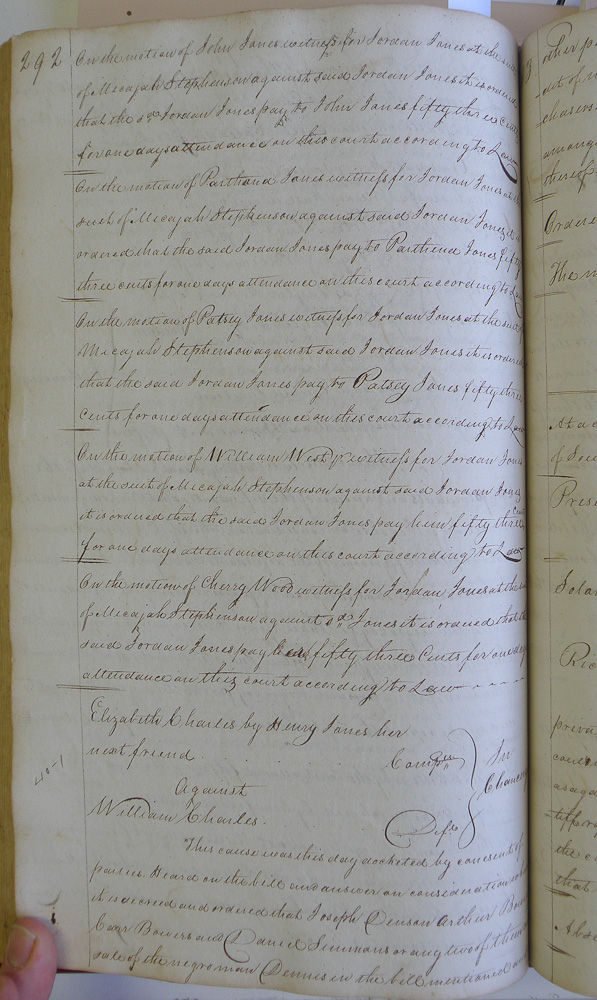 292
On the motion of John Jones witness for Jordan Jones at the suit
of Micajah Stephenson against said Jordan Jones it is ordered
that the sd. Jordan Jones pay to John Jones fifty three Cents
for one days attendance on this court according to Law
On the motion of Parthena Jones witness for Jordan Jones at the
suit of Micajah Stephenson against said Jordan Jones it is
ordered that the said Jordan Jones pay to Parthena Jones fifty
three cents for one days attendance on this court according to Law
On the motion of Patsey Jones witness for Jordan Jones at the suit of
Micajah Stephenson against said Jordan Jones it is ordered
that the said Jordan Jones pay to Patsey Jones fifty three
Cents for one days attendance on this court according to Law
On the motion of William West witness for Jordan Jones
at the suit of Micajah Stephenson against said Jordan Jones
it is ordered that the said Jordan Jones pay him fifty three Cents
for one days attendance on this court according to Law
On the motion of Cherry Wood witness for Jordan Jones at the suit
of Micajah Stephenson against sd. Jones it is ordered that the
said Jordan Jones pay her fifty three Cents for one days
attendance on this court according to Law
Elizabeth Charles by Henry Jones her
next friend Complt. In
Against Chancery
William Charles. Deft.
This cause was this day docketed by consent of
parties. Heard on the bill and answer on consideration
it is decreed and ordered that Joseph Denson Arthur
Carr Bowers and Daniel Simmons or any two of them
sale of the negro man Dennis in the bill mentioned
other
out of
chasers
among
thereof
Ordered
The
At a
of